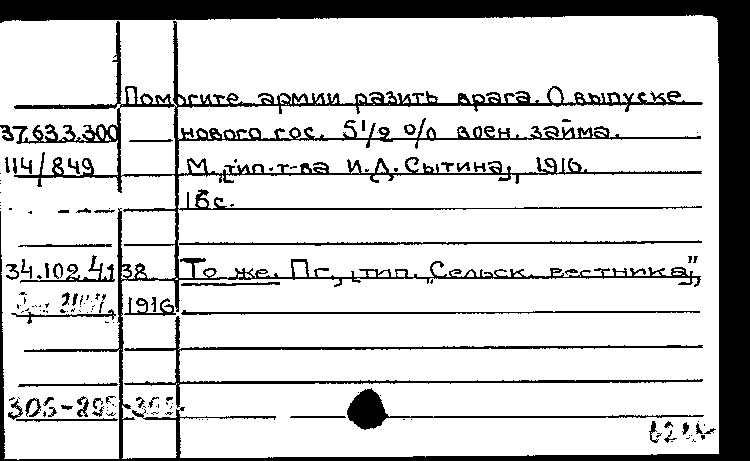 Помогите армии разить врага. О выпуске
37.63.3.300 нового гос. 5 1/2 % воен. займа.
114/849 М., тип. т-ва И.Д. Сытина, 1916.
16с.
34.102.4.138 То же. Пг., тип. „Сельск. вестника",
1916.